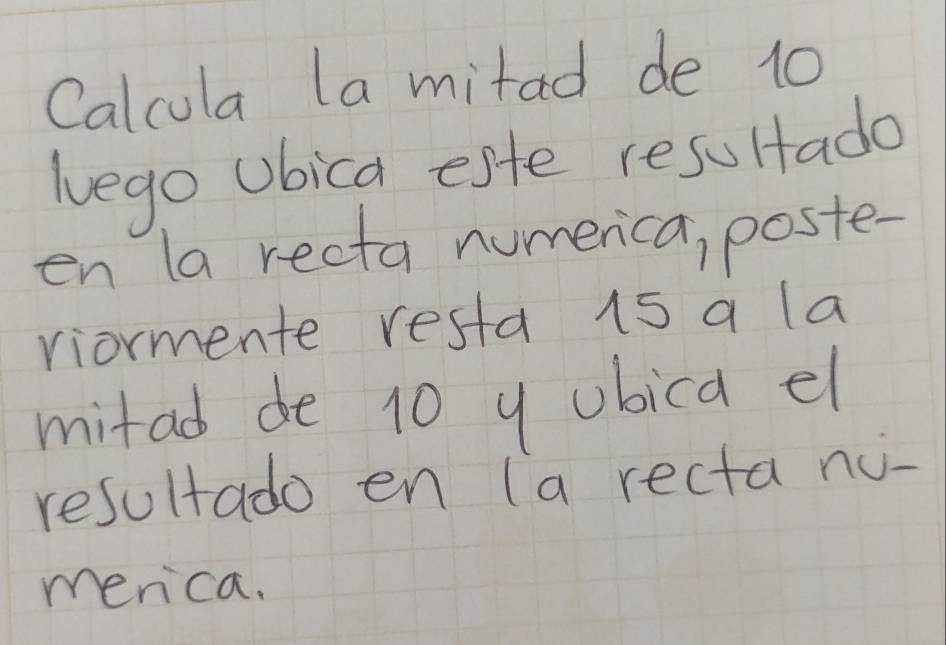 Calcula la mitad de 10
luego ubica este resultado
en la recta numerica, poste-
riormente resta 15 a la
mitad de 10 y ubica el
resultado en la recta nu-
merica.